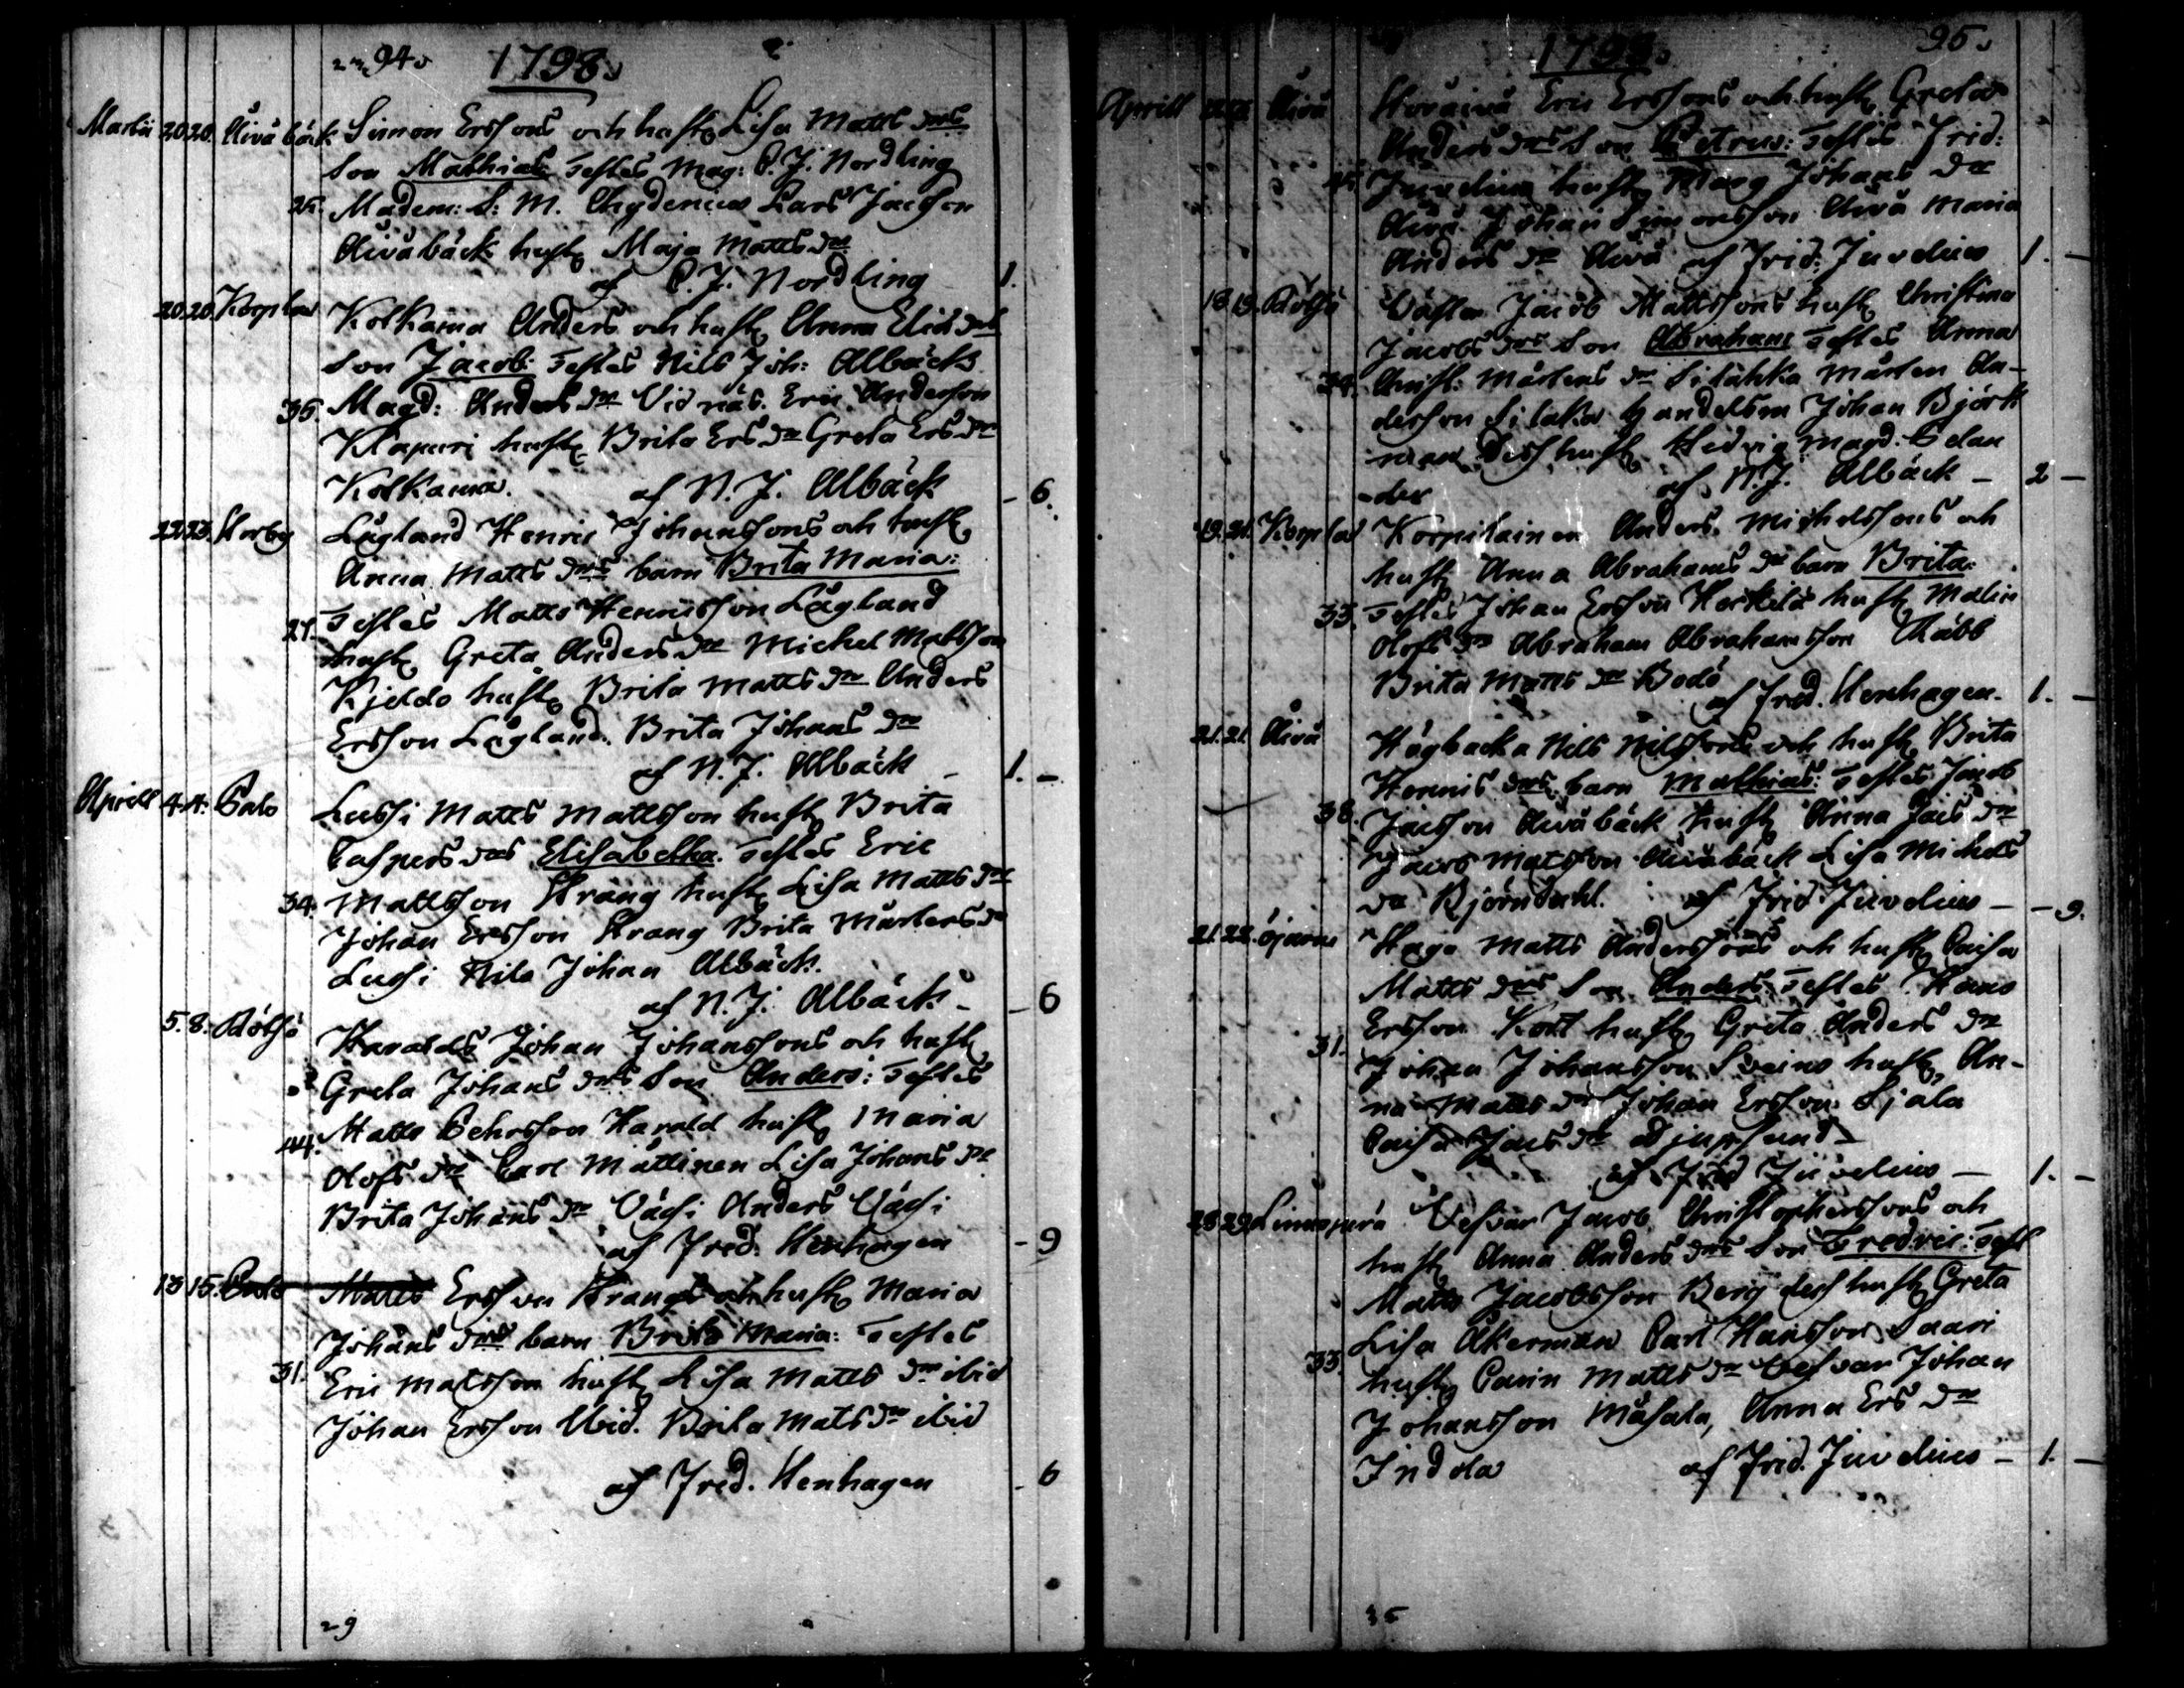 94. 1798.
Martii 20. 20. Åivåbäck Simon Erssons och hust. Lisa Matts drs
Son Mathias Testes Mag: C. J. Nordling
25. Madem: S: M. Chydenius Lars Jacsson
Åivåbäck hust. Maja Matts dr
af C. J. Nordling 1.
20. 20. Korplax Kolkama Anders och hust. Anna Elis drs
Son Jacob: Testes Nils Joh: Albäck
35. Magd: Anders dr Vidnäs. Eric Andersson
Klapuri hust. Brita Ers dr Greta Ers dr
Kolkama. af N. J. Albäck - 6.
22. 23. Storby Lågland Henric Johanssons och hust.
Anna Matts drs barn Brita Maria:
27. Testes Matts Henricsson Lågland
hust. Greta Anders dr Michel Matsson
Kjeldo hust. Brita Matts dr Anders
Ersson Lågland. Brita Johans dr
af N. J. Albäck 1. -
Aprill 4. 4. Palo Lassi Matts Mattsson hust. Brita
Caspers drs Elisabetha. Testes Eric
34. Mattsson Strang hust. Lisa Matts dr
Johan Ersson Strang Brita Mårtens dr
Lassi Nils Johan Albäck.
af N. J. Albäck - 6
5. 8. Rölsö Haralds Johan Johanssons och hust.
Greta Johans drs Son Anders: Testes
44. Matts Pehrsson Harald hust. Maria
Olofs dr Carl Mattinen Lisa Johans dr
Brita Johans dr Väsi Anders Väsi
af Fred. Henhagen - 9
13. 15. Palo Matts Ersson Strangs och hust. Maria
Johans drs barn Brita Maria: Testes
31. Eric Matsson hust. Lisa Matts dr ibid
Johan Ersson Ibid. Brita Mats dr ibid
af Fred. Henhagen - 6
29
1798. 95.
Aprill Åivå Storåivå Eric Erssons och hust. Greta
Anders drs Son Petrus: Testes Frid:
Juvelius hust. Marg Johans dr
Åivå Johan Simonsson Åivå Maria
Anders dr Åivå af Frid: Juvelius 1. -
18. 19. Rölsö Jacob Mattssons hust. Christina
Jacobs drs Son Abraham Testes Anna
34. Christ: Mårtens dr Silahka Mårten An-
dersson Silaka Handelsm Johan Björk
man Dess hust. Hedvig Magd: Celan
-der af N. J. Albäck - 2 -
19. 21. Korplax Korpilainen Anders Michelssons och
hust. Anna Abrahams dr barn Brita:
33. Testes Johan Ersson Herkilä hust. Malin
Olofs dr Abraham Abrahamsson Räbb
Brita Matts dr Bodö
af Fred. Henhagen. 1. -
21. 21. Åivå Högbacka Nils Nilssons och hust. Brita
Henrics drs barn Mathias: Testes Jacob
38. Jacsson Åivåbäck hust. Anna Jacs dr
Jacob Matsson Åivåbäck Lisa Michels
dr Björndahl. af Frid Juvelius - - 9.
21. 22. Öjarne Haga Matts Anderssons och hust. Caisa
Matts drs Son Anders: Testes Hans
Ersson Kort hust. Greta Anders dr
31. Johan Johansson Sveins hust. An-
na Matts dr Johan Ersson Sjala
Caisa Jacs dr Djupsund
af Frid Juvelius - 1. -
28. 29. Vesvar Jacob Christophersson och
hust. Anna Anders drs Son Fredric: Test
Matts Jacobsson Berg dess hust. Greta
Lisa Åkerman Carl Hansson Saari
33. hust. Carin Matts dr Vesvar Johan
Johansson Måsala, Anna Ers dr
Indola af Frid. Juvelius - 1. -
35